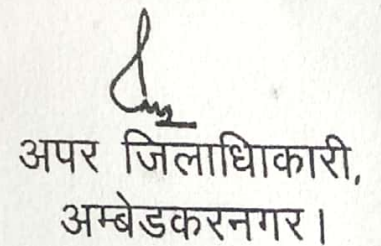 अपर जिलाधिाकारी,
अम्बेडकरनगर।